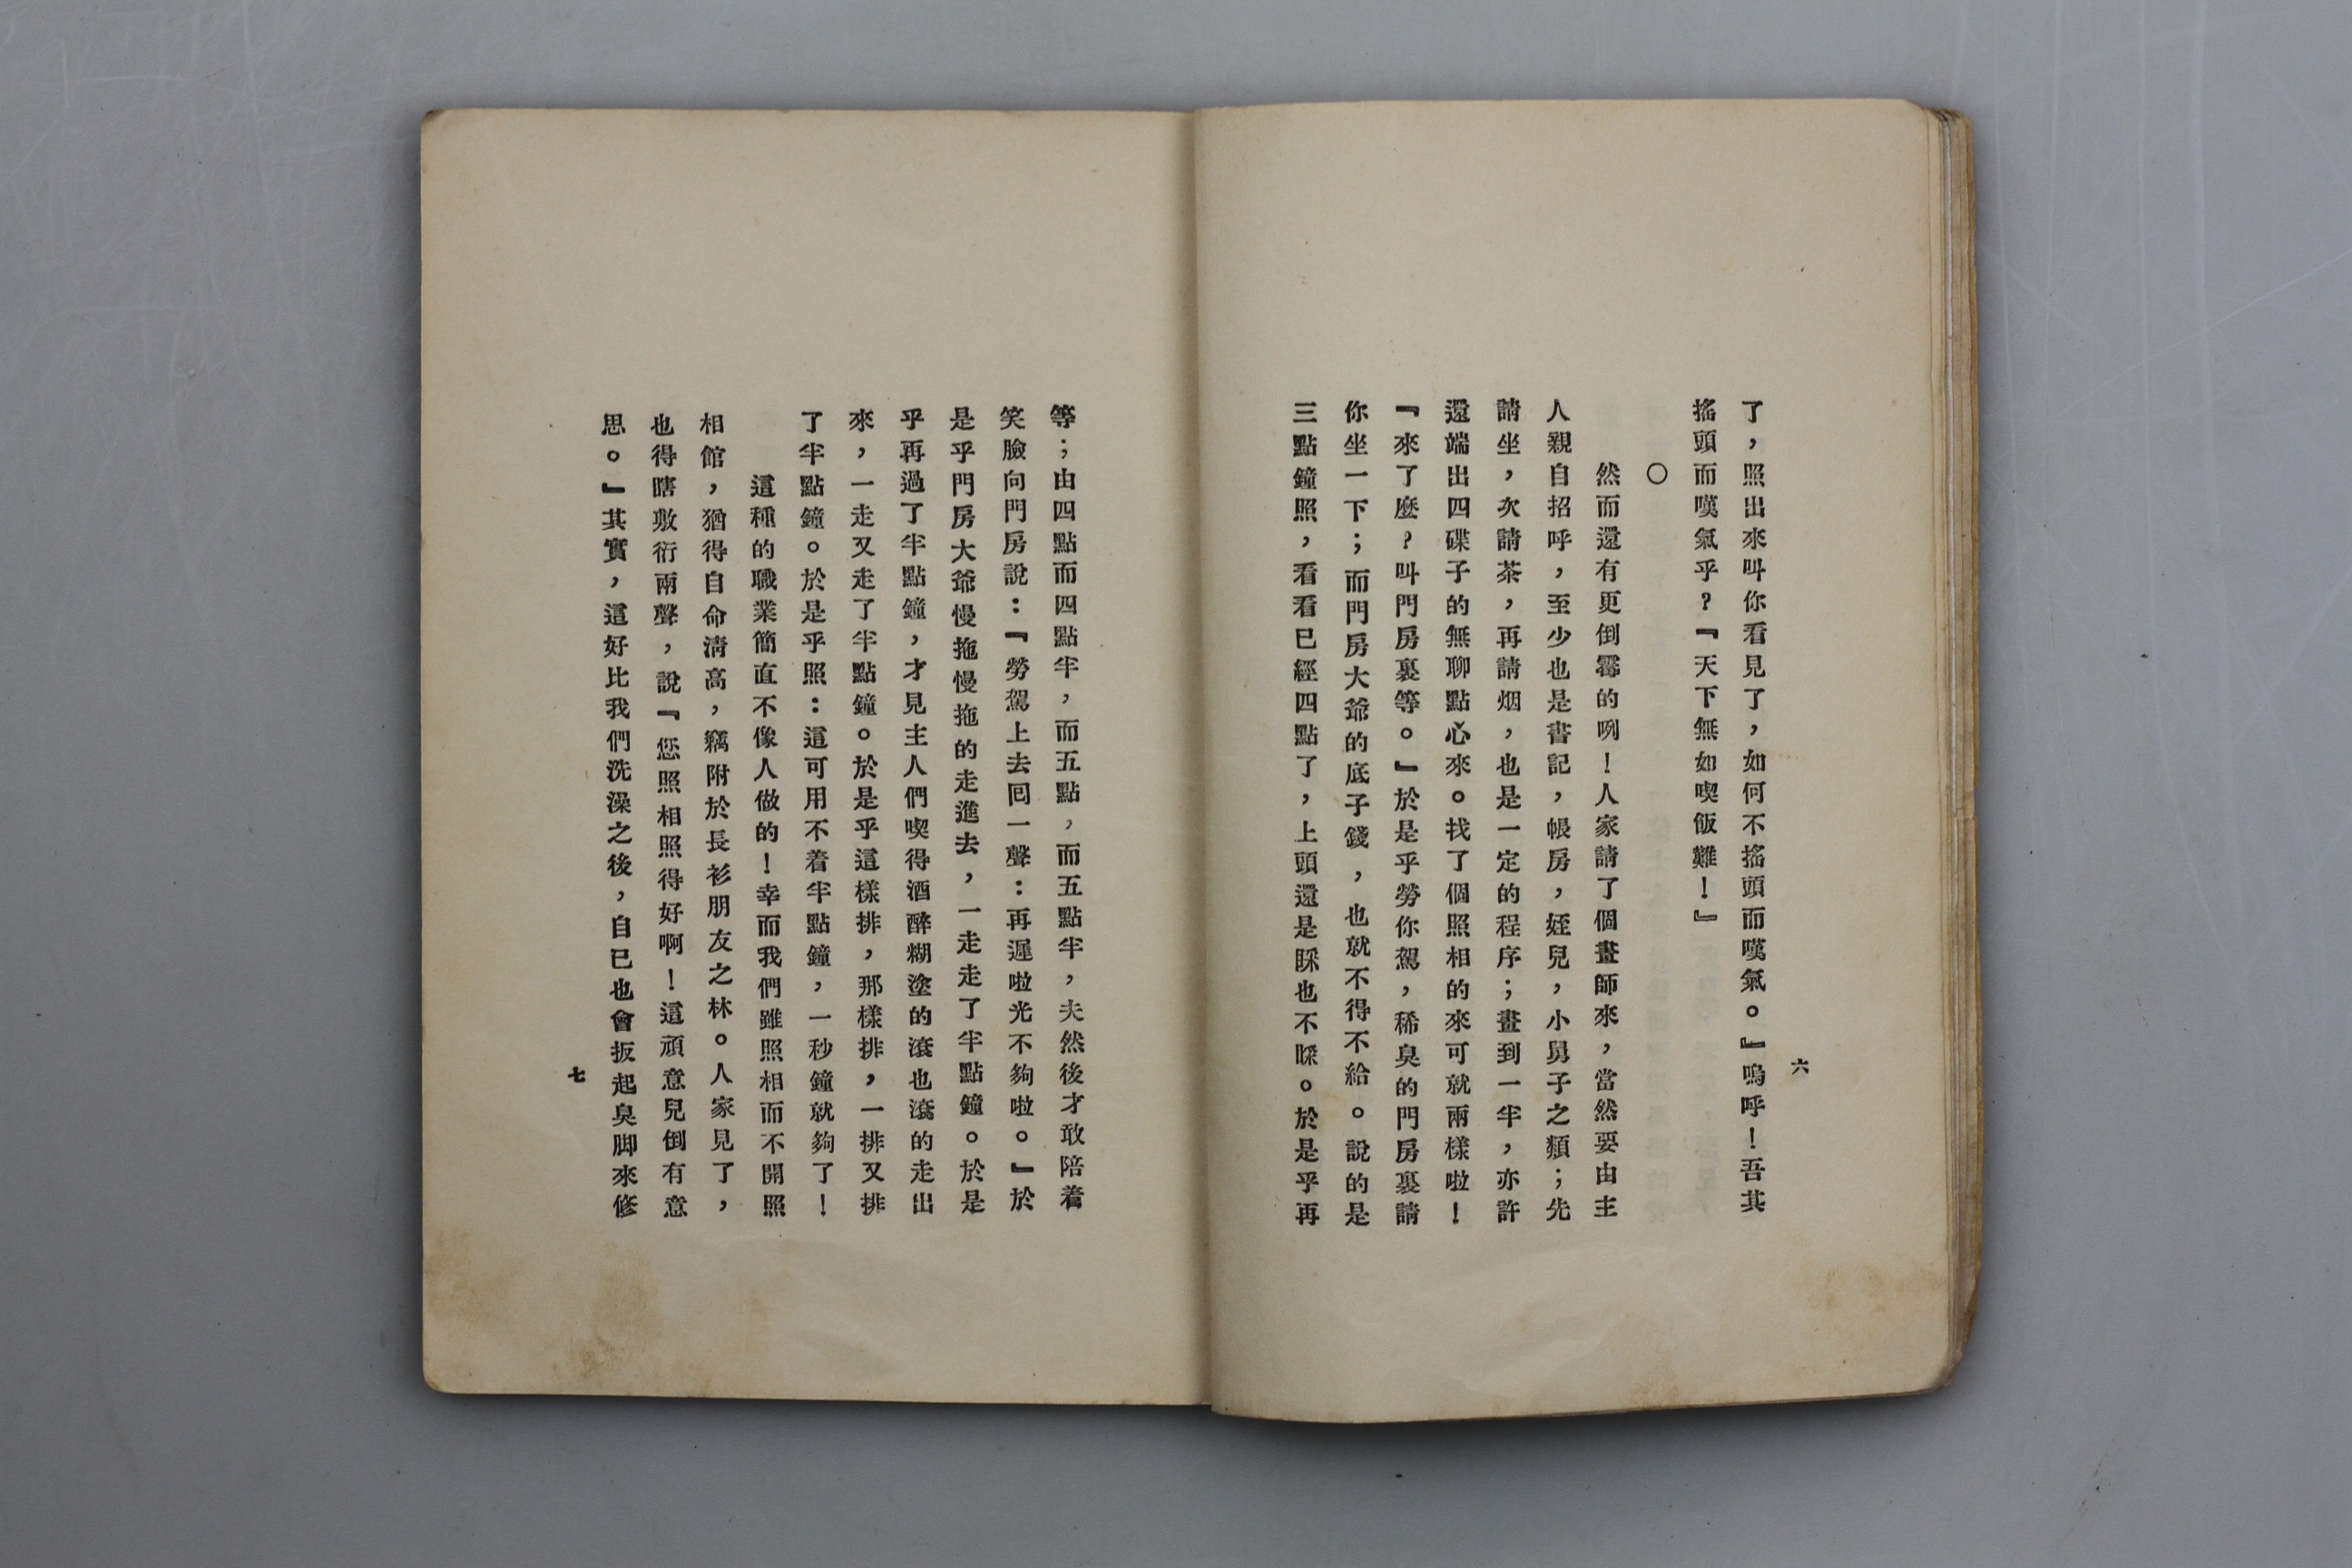 六
了，照出來叫你看見了，如何不搖頭而嘆氣。』嗚呼！吾其
搖頭而嘆氣乎？『天下無如喫飯難！』
○
然而還有更倒霉的咧！人家請了個畫師來，當然要由主
人親自招呼，至少也是書記，帳房，姪兒，小舅子之類；先
請坐，次請茶，再請烟，也是一定的程序；畫到一半，亦許
還端出四碟子的無聊點心來。找了個照相的來可就兩樣啦！
『來了麼？叫門房裏等。』於是乎勞你駕，稀臭的門房裏請
你坐一下；而門房大爺的底子錢，也就不得不給。說的是
三點鐘照，看看已經四點了，上頭還是睬也不睬。於是乎再
等；由四點而四點半，而五點，而五點半，夫然後才敢陪着
笑臉向門房說：『勞駕上去回一聲：再遲啦光不夠啦。』於
是乎門房大爺慢拖慢拖的走進去，一走走了半點鐘。於是
乎再過了半點鐘，才見主人們喫得酒醉糊塗的滾也滾的走出
來，一走又走了半點鐘。於是乎這樣排，那樣排，一排又排
了半點鐘。於是乎照：這可用不着半點鐘，一秒鐘就夠了！
這種的職業簡直不像人做的！幸而我們雖照相而不開照
相館，猶得自命清高，竊附於長衫朋友之林。人家見了，
也得瞎敷衍兩聲，說『您照相照得好啊！這頑意兒倒有意
思。』其實，這好比我們洗澡之後，自已也會扳起臭脚來修
七